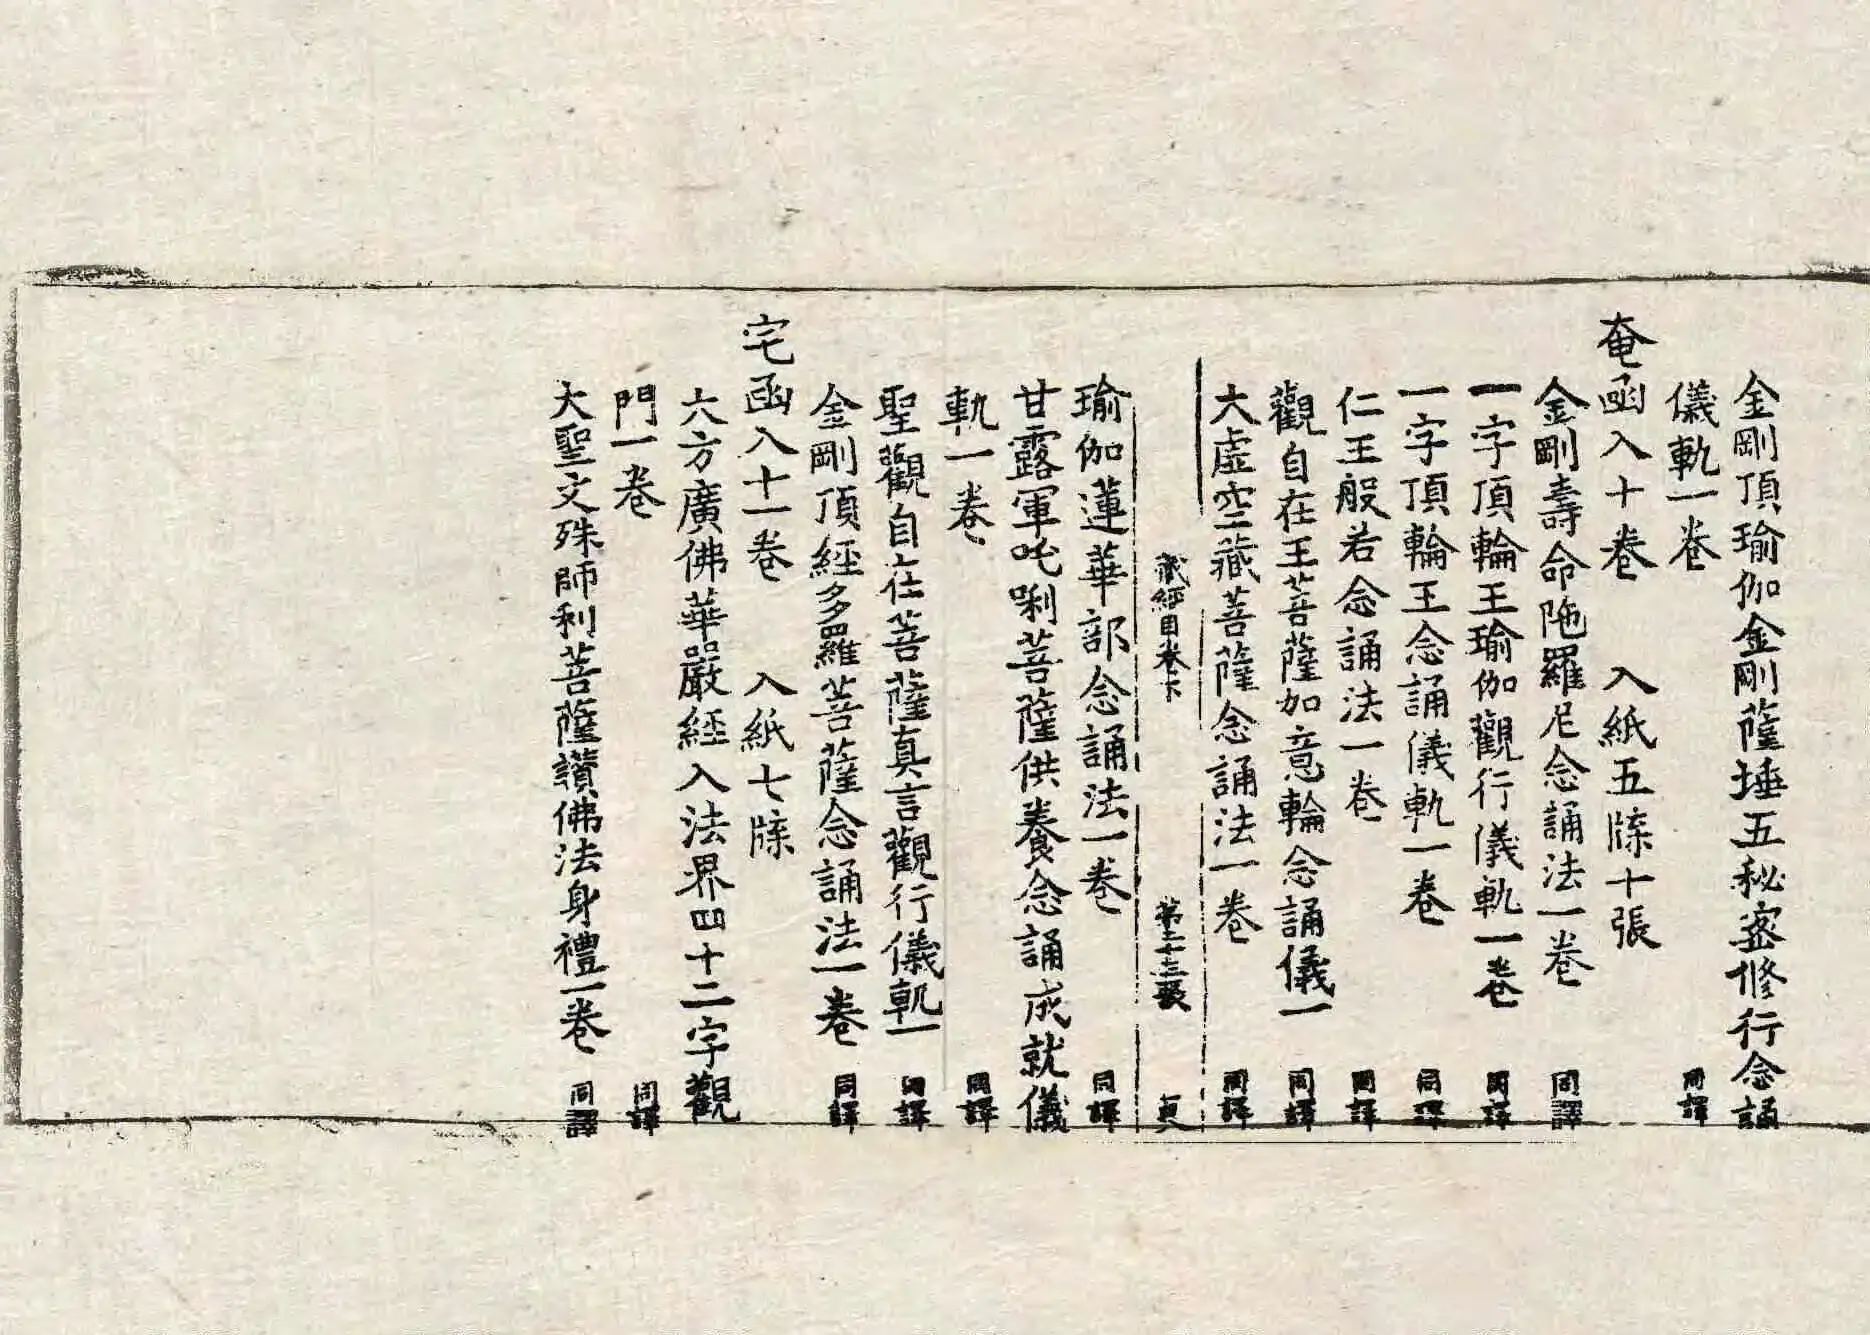 金剛頂瑜伽金剛薩埵五秘密修行念誦
儀軌一卷 同譯
奄函入十卷 入紙五牒十張
金剛壽命陁羅尼念誦法一卷 同譯
一字頂輪王瑜伽觀行儀軌一卷 同譯
一字頂輪王念誦儀軌一卷 同譯
仁王般若念誦法一卷 同譯
觀自在王菩薩如意輪念誦儀一 同譯
大虛空藏菩薩念誦法一卷 同譯
藏經目卷下 第二十三張 貞
瑜伽蓮華部念誦法一卷 同譯
甘露軍吒唎菩薩供養念誦成就儀
軌一卷 同譯
聖觀自在菩薩真言觀行儀軌一 同譯
金剛頂經多羅菩薩念誦法一卷 同譯
宅函入十一卷 入紙七牒
大方廣佛華嚴經入法界四十二字觀
門一卷 同譯
大聖文殊師利菩薩讚佛法身禮一卷 同譯